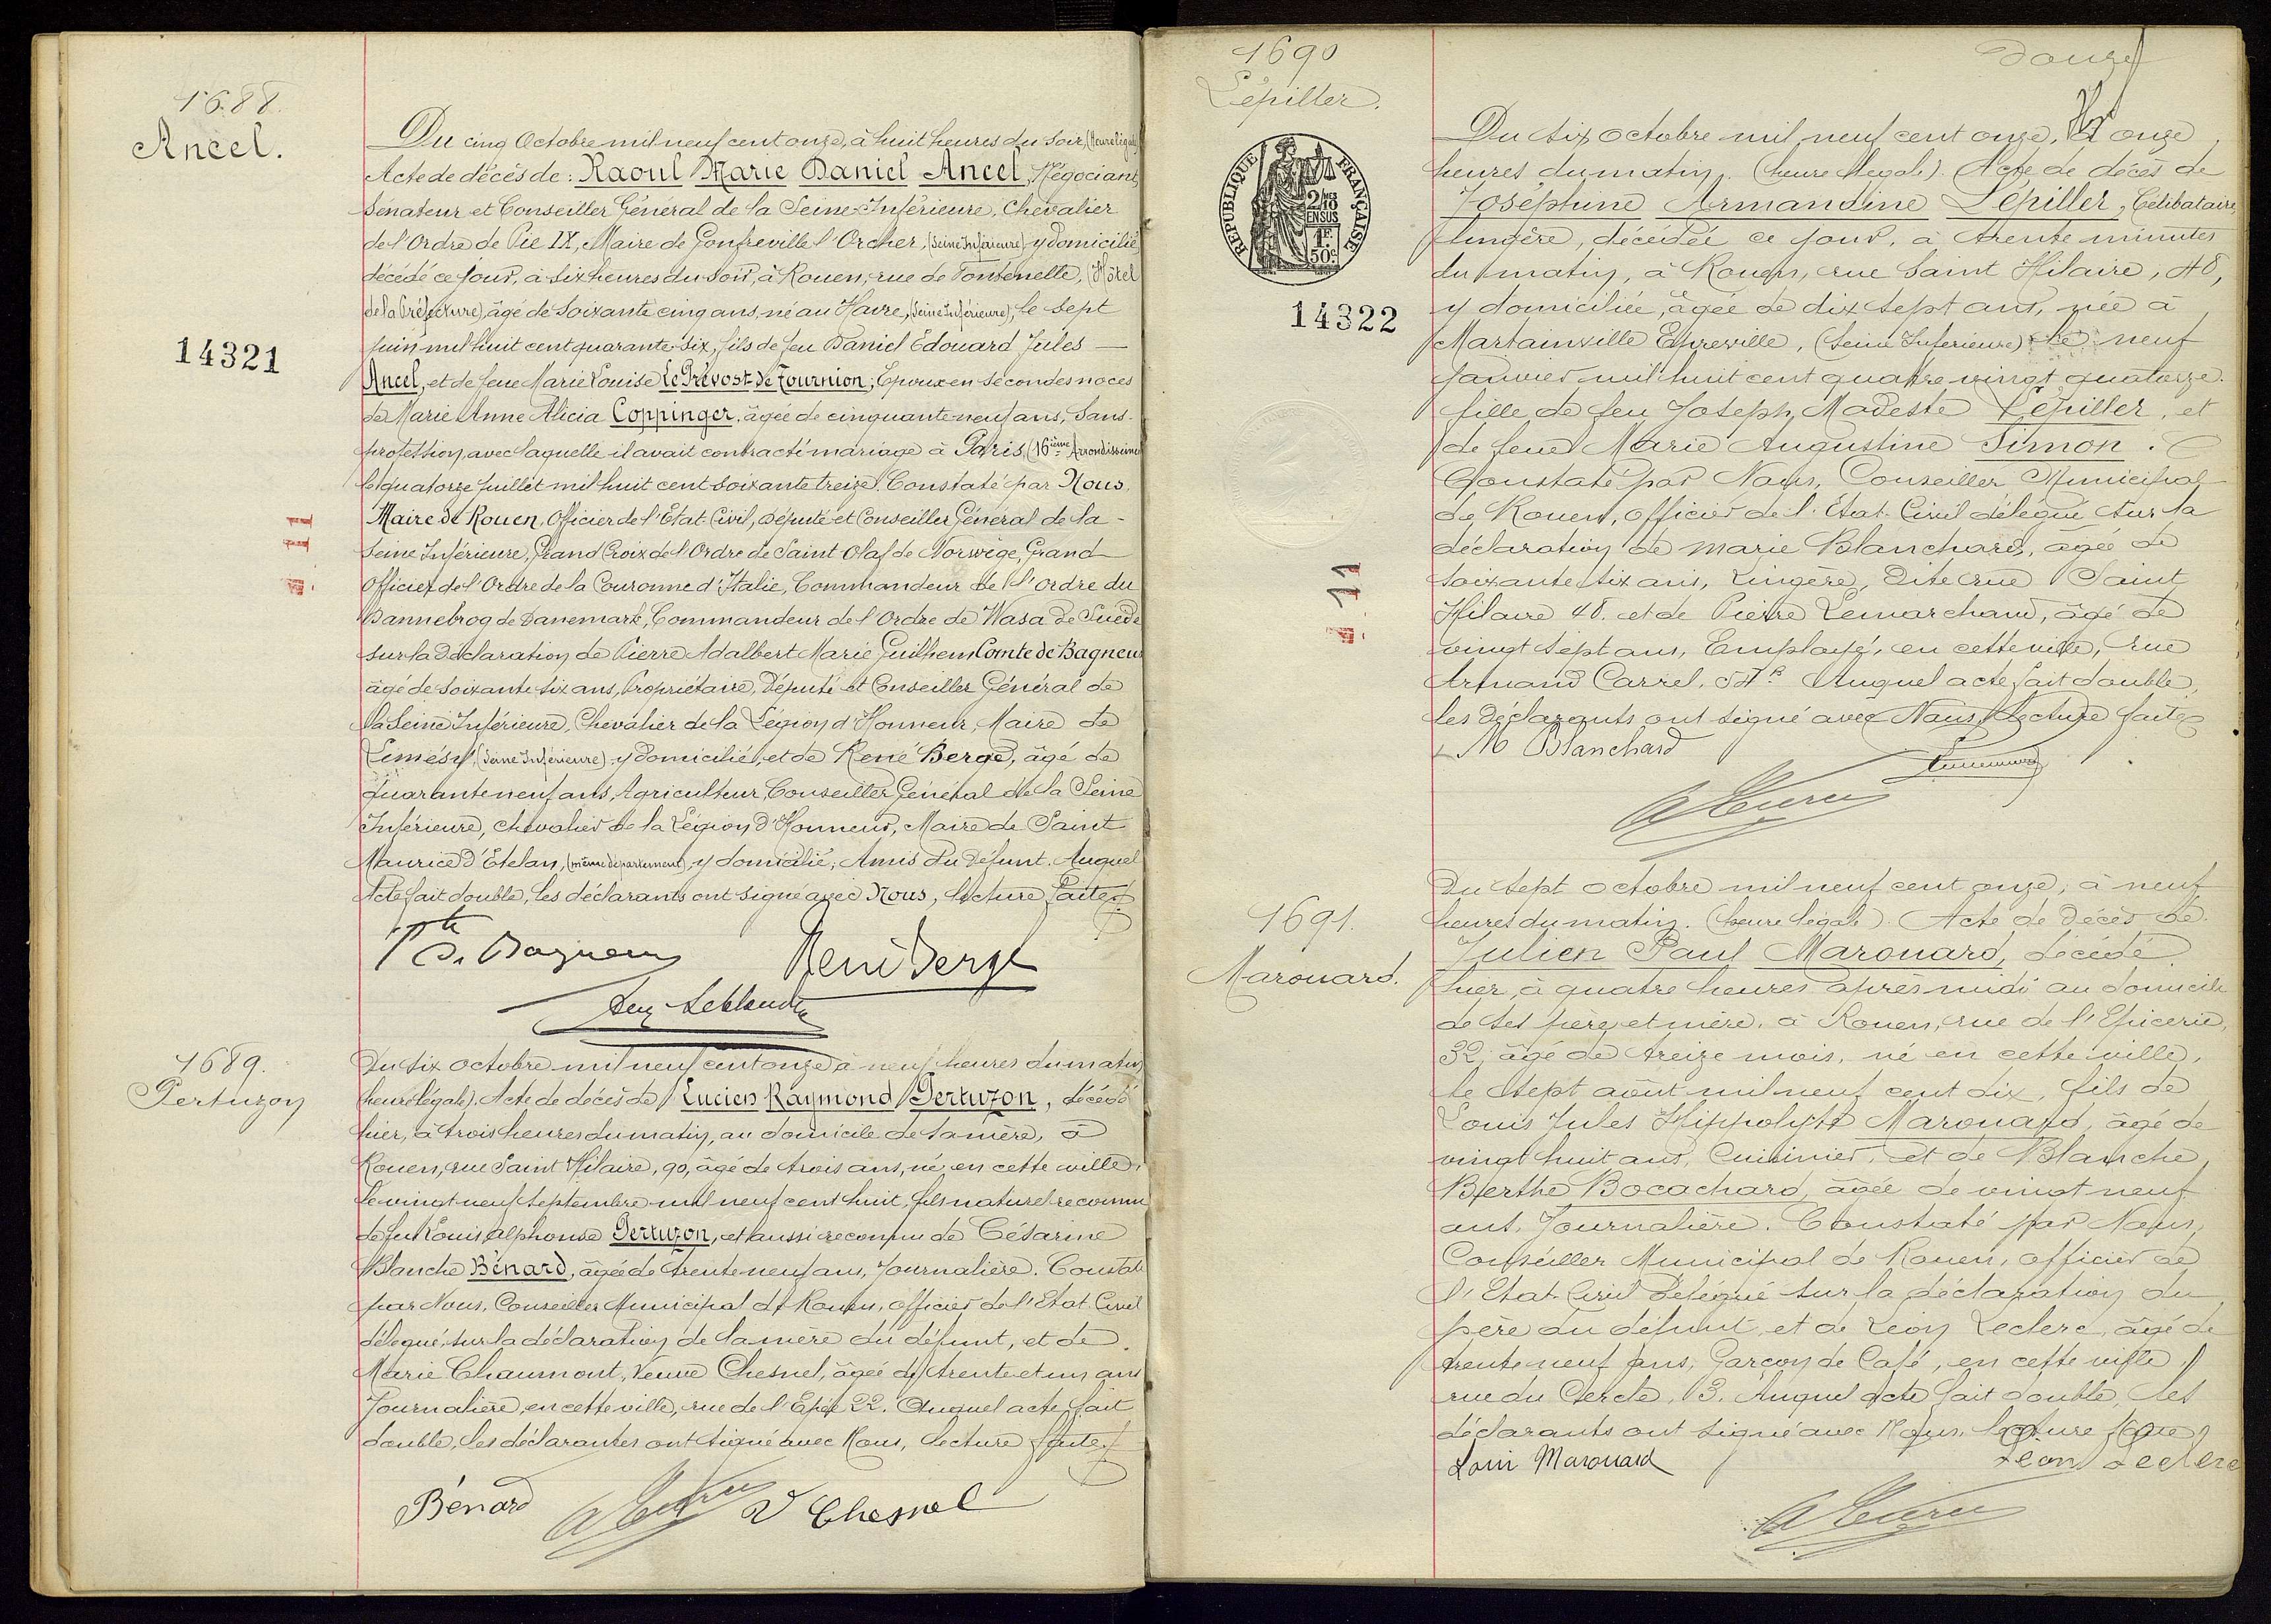 1688.
Ancel.
14321
Du cinq Octobre mil neuf cent onze, à huit heures du soir, (heure légale)
Acte de décès de : Raoul Marie Daniel Ancel, Négociant,
Sénateur et Conseiller Général de la Seine-Inférieure, Chevalier
de l'Ordre de Pie IX, Maire de Gonfreville l'Orcher, (Seine Inférieure) y domicilié
décédé ce jour, à six heures du soir, à Rouen, rue de Fontenelle, (Hôtel
de la Préfecture), âgé de soixante cinq ans, né au Havre, (Seine Inférieure), le sept
juin mil huit cent quarante-six, fils de feu Daniel Édouard Jules
Ancel, et de feue Marie Louise Le Prévost de Tournion ; Epoux en secondes noces
de Marie Anne Alicia Coppinger, âgée de cinquante neuf ans, sans
profession, avec laquelle il avait contracté mariage à Paris, (16ième Arrondissement
le quatorze juillet mil huit cent soixante treize. Constaté par Nous,
Maire de Rouen, Officier de l'Etat-Civil, Député et Conseiller Général de la
Seine Inférieure, Grand Croix de l'Ordre de Saint Olaf de Norwège, Grand
Officier de l'Ordre de la Couronne d'Italie, Commandeur de l'Ordre du
Dannebrog de Danemark, Commandeur de l'Ordre de Wasa de Suède
sur la déclaration de Pierre Adalbert Marie Guilhem Comte de Bagneux
âgé de soixante six ans, Propriétaire, Député et Conseiller Général de
la Seine Inférieure, Chevalier de la Légion d'Honneur, Maire de
Limésy (Seine Inférieure) y domicilié, et de René Berge, âgé de
quarante neuf ans, Agriculteur, Conseiller Général de la Seine
Inférieure, chevalier de la Légion d'Honneur, Maire de Saint
Maurice d'Etelan, (même département), y domicilié ; Amis du défunt. Auquel
Acte fait double, les déclarants ont signé avec Nous, lecture faite
Cte de Bagneux René Berge
Leblond
1689.
Pertuzon
Du six octobre mil neuf cent onze à neuf heures du matin
(heure légale). Acte de décès de Lucien Raymond Pertuzon, décédé
hier, à trois heures du matin, au domicile de sa mère, à
Rouen, rue Saint Hilaire, 90, âgé de trois ans, né en cette ville,
le vingt neuf septembre mil neuf cent huit, fils naturel reconnu
de feu Louis Alphonse Pertuzon, et aussi reconnu de Césarine
Blanche Bénard, âgée de trente neuf ans, Journalière. Constaté
par Nous, Conseiller Municipal de Rouen, officier de l'Etat-Civil
délégué, sur la déclaration de la mère du défunt, et de
Marie Chaumont, Veuve Chesnel, âgée de trente et un ans
Journalière, en cette ville, rue de l'Epée 22. Auquel acte fait
double, les déclarantes ont signé avec Nous, lecture faite.
Bénard Vve Chesnel
1690
Lépiller.
RÉPUBLIQUE FRANÇAISE
2/10 EN SUS
1F 50c
14322
douze
Du six octobre mil neuf cent onze, à onze
heures du matin. (heure légale). Acte de décès de
Joséphine Armandine Lépiller, Célibataire,
lingère, décédée ce jour, à trente minutes
du matin, à Rouen, rue Saint Hilaire, 48,
y domiciliée, âgée de dix sept ans, née à
Martainville Epreville, (Seine Inférieure) le neuf
janvier mil huit cent quatre vingt quatorze.
fille de feu Joseph Modeste Lépiller, et
de feue Marie Augustine Simon.
Constaté par Nous, Conseiller Municipal
de Rouen, officier de l'Etat-Civil délégué sur la
déclaration de Marie Blanchard, âgée de
soixante six ans, Lingère, dite rue Saint
Hilaire 48. et de Pierre Lemarchand, âgé de
vingt sept ans, Employé, en cette ville, rue
Armand Carrel, 5 Auquel acte fait double,
les déclarants ont signé avec Nous, lecture faite
M Blanchard
1691.
Marouard.
Du sept octobre mil neuf cent onze, à neuf
heures du matin. (heure légale). Acte de décès de
Julien Paul Marouard, décédé
hier, à quatre heures après midi au domicile
de ses père et mère, à Rouen, rue de l'Epicerie,
32, âgé de treize mois, né en cette ville,
le sept août mil neuf cent dix, fils de
Louis Jules Hippolyte Marouard, âgé de
vingt huit ans, Cuisinier, et de Blanche
Berthe Bocachard, âgée de vingt neuf
ans, Journalière. Constaté par Nous,
Conseiller Municipal de Rouen, officier de
l'Etat-Civil délégué sur la déclaration du
père du défunt, et de Léon Leclerc, âgé de
trente neuf ans, Garçon de Café, en cette ville
rue du Cercle, 13. Auquel acte fait double, les
déclarants ont signé avec Nous, lecture faite
Louis Marouard Léon Leclerc